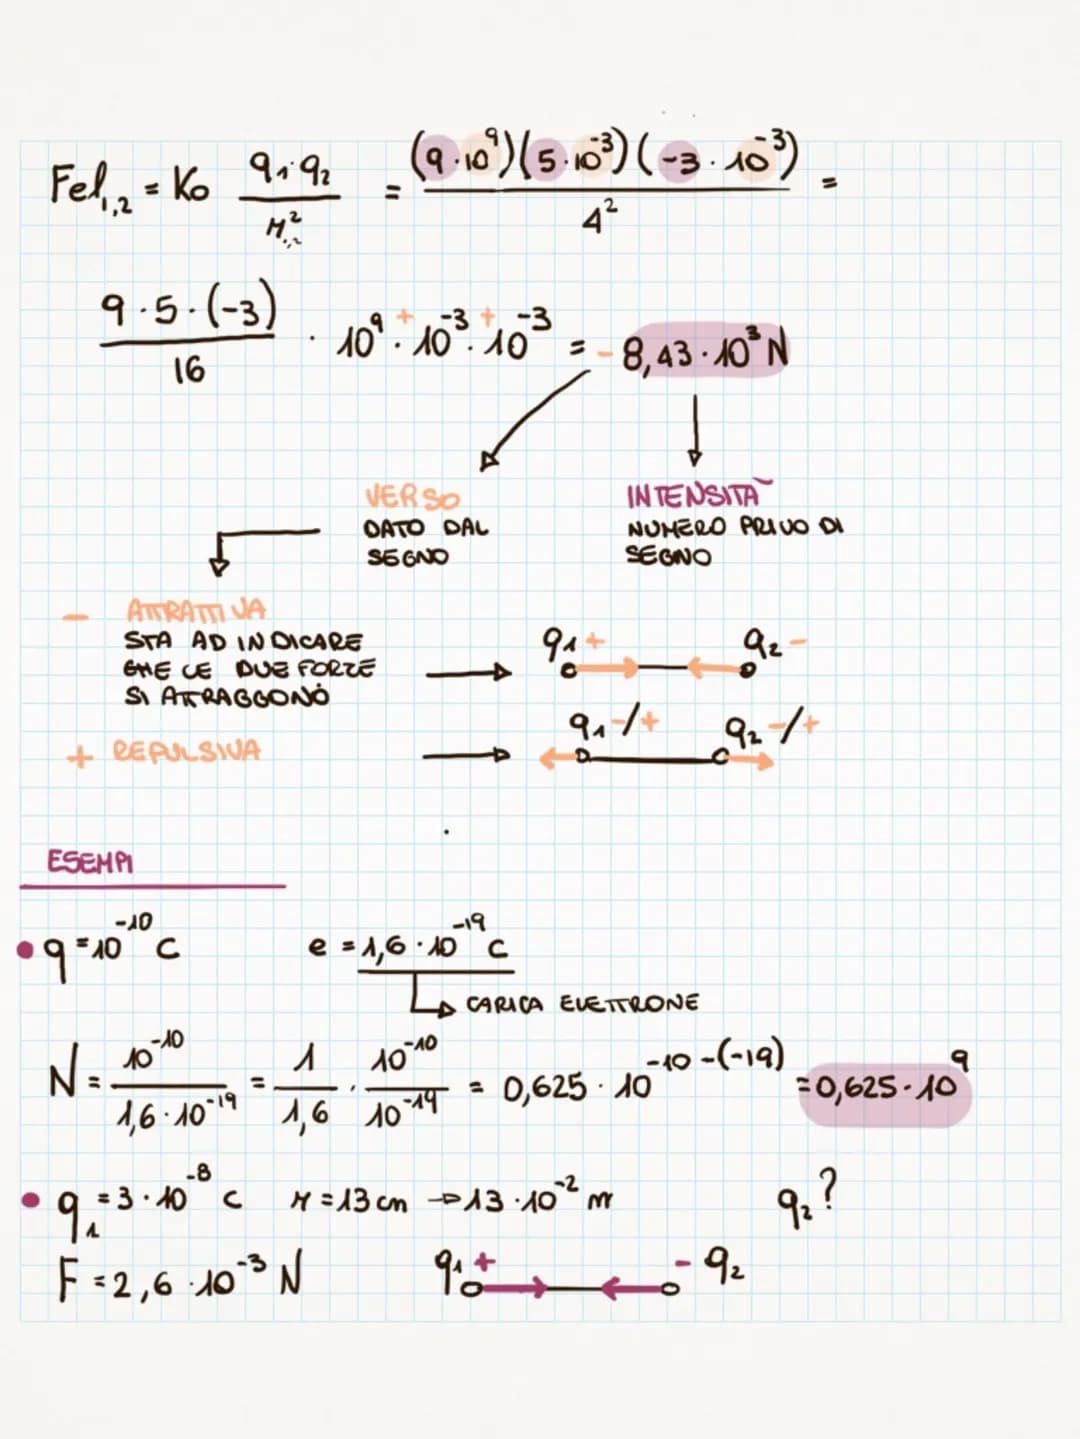 Fel₁,₂ = K₀ q₁·q₂ / r₁,₂² = (9·10⁹)(5·10⁻³)(-3·10⁻³) / 4² =
9·5·(-3) / 16 · 10⁹ + · 10⁻³ + · 10⁻³ = - 8,43·10³ N
VERSO
DATO DAL
SEGNO
INTENSITÀ
NUMERO PRIVO DI
SEGNO
- ATTRATTIVA
STA AD INDICARE
CHE LE DUE FORZE
SI ATTRAGGONO
q₁ + q₂ -
+ REPULSIVA
q₁ -/+ q₂ -/+
ESEMPI
• q = 10⁻¹⁰ C e = 1,6·10⁻¹⁹ C
CARICA ELETTRONE
N = 10⁻¹⁰ / 1,6·10⁻¹⁹ = 1 / 1,6 · 10⁻¹⁰ / 10⁻¹⁹ = 0,625·10⁻¹⁰⁻⁽⁻¹⁹⁾ = 0,625·10⁹
• q₁ = 3·10⁻⁸ C r = 13 cm → 13·10⁻² m q₂?
F = 2,6·10⁻³ N q₁ + - q₂